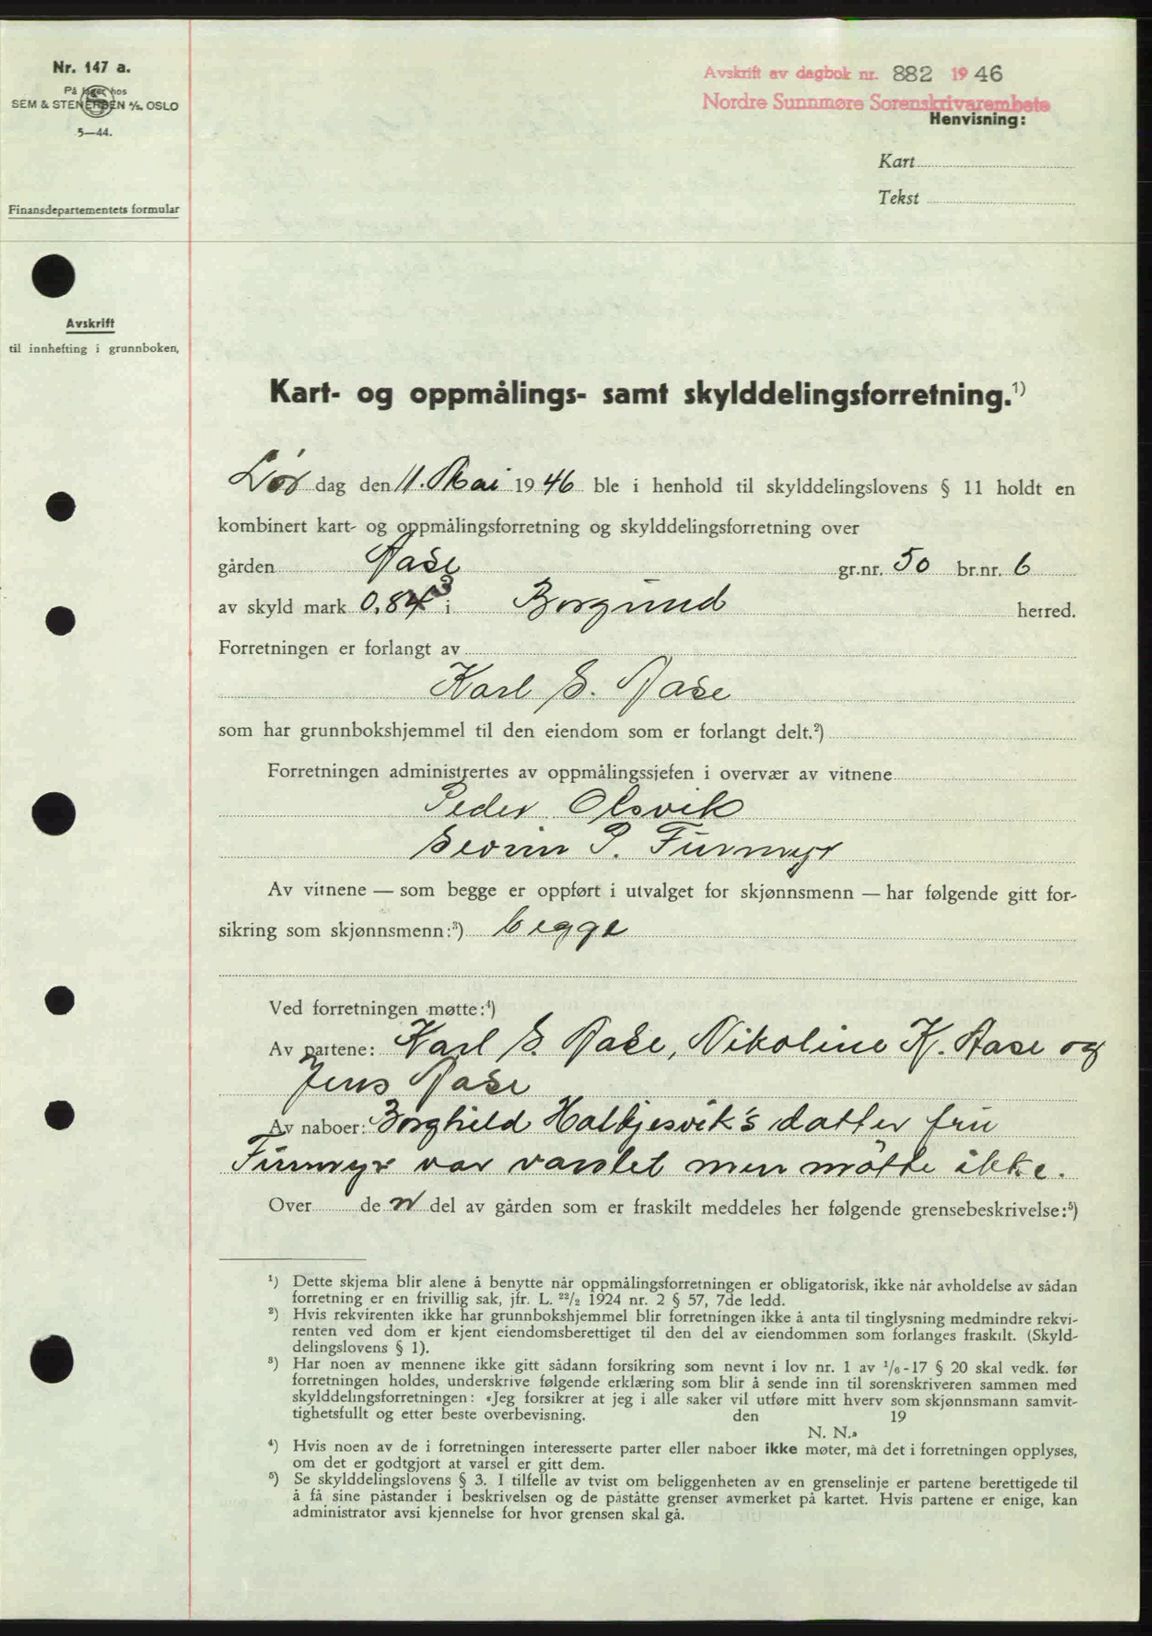 Nr. 147 a.
På lager hos
SEM & STENERSEN A/S, OSLO
5—44.
Finansdepartementets formular
Avskrift
til innhefting i grunnboken,
Avskrift av dagbok nr. 882 1946
Nordre Sunnmøre Sorenskrivarembete
Henvisning:
Kart
Tekst
Kart- og oppmålings- samt skylddelingsforretning.¹)
Lør dag den 11. Mai 1946 ble i henhold til skylddelingslovens § 11 holdt en
kombinert kart- og oppmålingsforretning og skylddelingsforretning over
gården Aase gr.nr. 50 br.nr. 6
av skyld mark 0,843 i Borgund herred.
Forretningen er forlangt av
Karl S. Aase
som har grunnbokshjemmel til den eiendom som er forlangt delt.²)
Forretningen administrertes av oppmålingssjefen i overvær av vitnene
Peder Olsvik
Sevrin P. Furmyr
Av vitnene — som begge er oppført i utvalget for skjønnsmenn — har følgende gitt for-
sikring som skjønnsmenn:³) begge
Ved forretningen møtte:⁴)
Av partene: Karl S. Aase, Nikoline K. Aase og
Jens Aase
Av naboer: Borghild Halkjesvik's datter fru
Furmyr var varslet men møtte ikke.
Over de n del av gården som er fraskilt meddeles her følgende grensebeskrivelse:⁵)
¹) Dette skjema blir alene å benytte når oppmålingsforretningen er obligatorisk, ikke når avholdelse av sådan
forretning er en frivillig sak, jfr. L. ²²/₂ 1924 nr. 2 § 57, 7de ledd.
²) Hvis rekvirenten ikke har grunnbokshjemmel blir forretningen ikke å anta til tinglysning medmindre rekvi-
renten ved dom er kjent eiendomsberettiget til den del av eiendommen som forlanges fraskilt. (Skyld-
delingslovens § 1).
³) Har noen av mennene ikke gitt sådann forsikring som nevnt i lov nr. 1 av ¹/₆-17 § 20 skal vedk. før
forretningen holdes, underskrive følgende erklæring som blir å sende inn til sorenskriveren sammen med
skylddelingsforretningen: «Jeg forsikrer at jeg i alle saker vil utføre mitt hverv som skjønnsmann samvit-
tighetsfullt og etter beste overbevisning. den 19
N. N.»
⁴) Hvis noen av de i forretningen interesserte parter eller naboer ikke møter, må det i forretningen opplyses,
om det er godtgjort at varsel er gitt dem.
⁵) Se skylddelingslovens § 3. I tilfelle av tvist om beliggenheten av en grenselinje er partene berettigede til
å få sine påstander i beskrivelsen og de påståtte grenser avmerket på kartet. Hvis partene er enige, kan
administrator avsi kjennelse for hvor grensen skal gå.